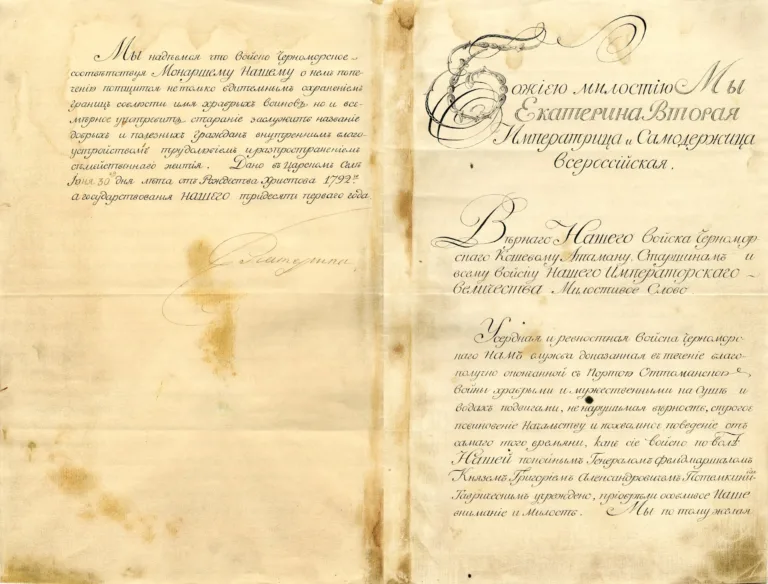 Мы надѣемся что Войско Черноморское
соотвѣтствуя Монаршему Нашему о немъ попе-
ченію потщится не только бдительнымъ охраненіемъ
границъ соблюсти имя храбрыхъ воиновъ, но и все-
мѣрное употребитъ стараніе заслужить названіе
добрыхъ и полезныхъ гражданъ внутреннимъ благо-
устройствомъ трудолюбіемъ и распространеніемъ
семейственнаго житія. Дано въ Царскомъ Селѣ
Іюня 30 дня лѣта отъ Рождества Христова 1792го
а государствованія Нашего тридесять перваго года
Екатерина
Божіею милостію Мы
Екатерина Вторая
Императрица и Самодержица
Всероссійская.
Вѣрнаго Нашего Войска Черномор
скаго Кошевому Атаману, Старшинамъ и
всему Войску Нашего Императорскаго
Величества Милостивое Слово
Усердная и ревностная Войска Черномор-
скаго Намъ служба доказанная въ теченіе благо-
получно оконченной съ Портою Оттоманскою,
войны храбрыми и мужественными на Сушѣ и
водахъ подвигами, ненарушимая вѣрность, строгое
повиновеніе Начальству и похвальное поведеніе отъ
самаго того времяни, какъ сіе войско по волѣ
Нашей покойнымъ Генераломъ фельдмаршаломъ
Княземъ Григорьемъ Александровичемъ Потемкинымъ
Таврическимъ учреждено, пріобрѣли особливое Наше
вниманіе и Милость. Мы по тому желая